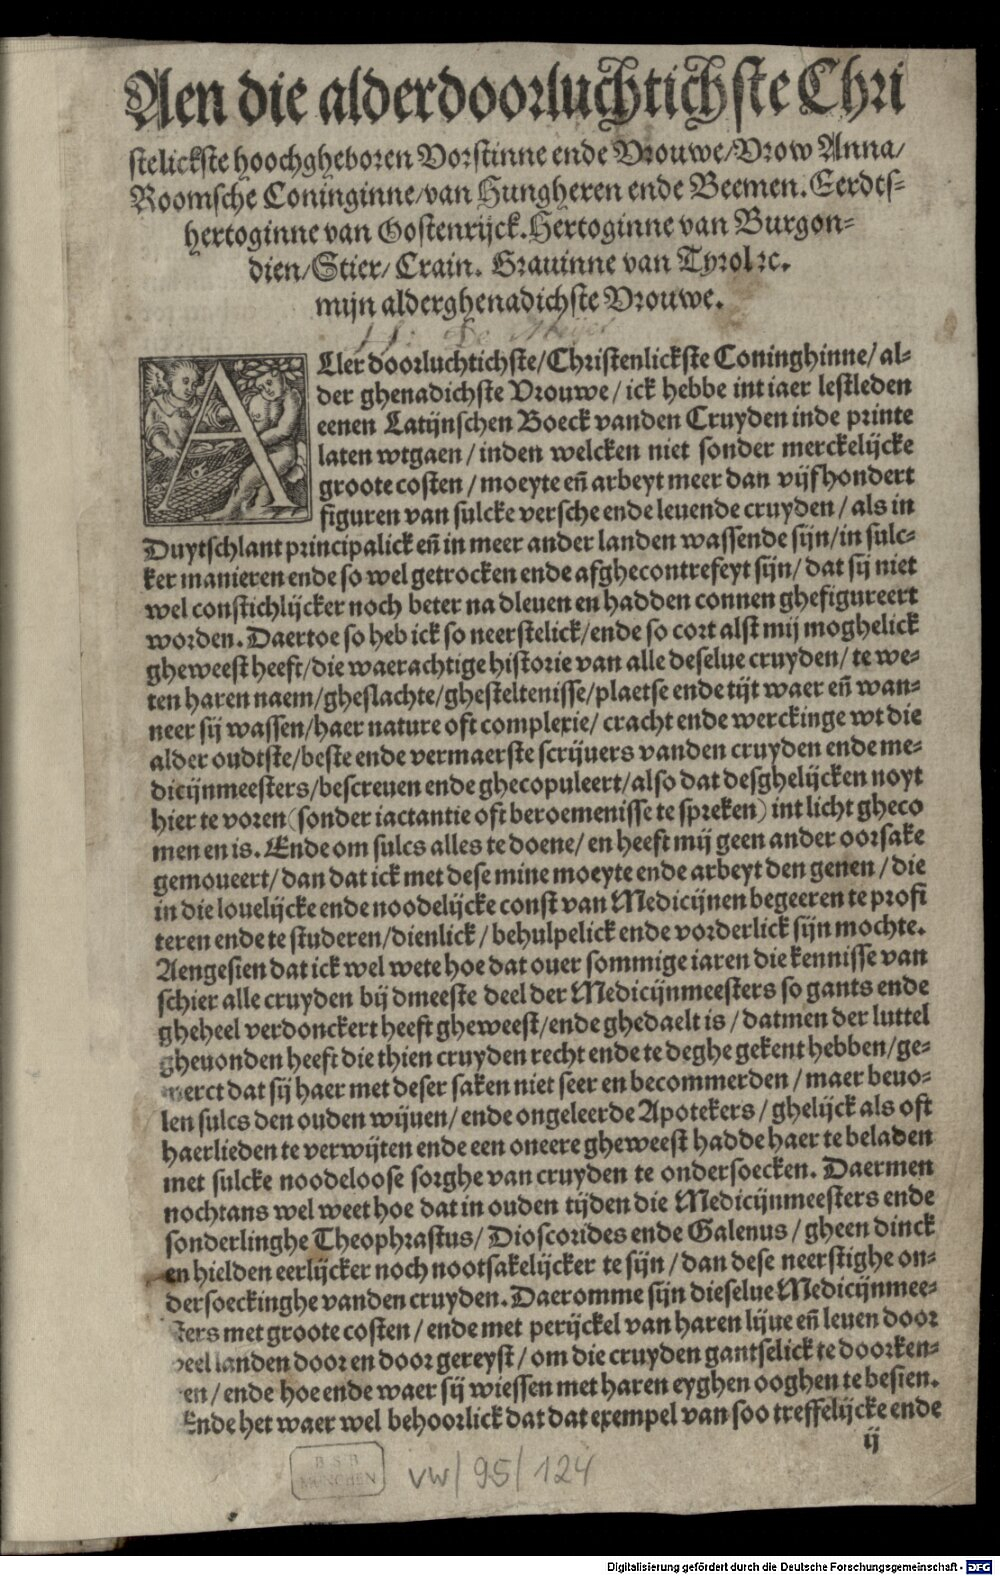 Aen die alderdoorluchtichste Chri
stelickste hoochgheboren Vorstinne ende Vrouwe/Vrow Anna/
Roomsche Coninginne/van Hungheren ende Beemen. Eerdts-
hertoginne van Oostenrijck. Hertoginne van Burgon-
dien/Stier/ Crain. Grauinne van Tyrol ꝛc.
mijn alderghenadichste Vrouwe.
ALler doorluchtichste/Christenlickste Coninghinne/ al-
der ghenadichste Vrouwe / ick hebbe int iaer lestleden
eenen Latijnschen Boeck vanden Cruyden inde printe
laten wtgaen / inden welcken niet sonder merckelijcke
groote costen / moeyte eñ arbeyt meer dan vijfhondert
figuren van sulcke versche ende leuende cruyden / als in
Duytschlant principalick eñ in meer ander landen wassende sijn/in sulc-
ker manieren ende so wel getrocken ende afghecontrefeyt sijn/ dat sij niet
wel constichlijcker noch beter na dleuen en hadden connen ghefigureert
worden. Daertoe so heb ick so neerstelick/ende so cort alst mij moghelick
gheweest heeft/die waerachtige historie van alle deselue cruyden/ te we-
ten haren naem/gheslachte/ghesteltenisse/plaetse ende tijt waer eñ wan-
neer sij wassen/haer nature oft complexie/ cracht ende werckinge wt die
alder oudtste/beste ende vermaerste scrijuers vanden cruyden ende me-
dicijnmeesters/bescreuen ende ghecopuleert/also dat desghelijcken noyt
hier te voren (sonder iactantie oft beroemenisse te spreken) int licht gheco
men en is. Ende om sulcs alles te doene/ en heeft mij geen ander oorsake
gemoueert/ dan dat ick met dese mine moeyte ende arbeyt den genen / die
in die louelijcke ende noodelijcke const van Medicijnen begeeren te profi
teren ende te studeren/dienlick / behulpelick ende vorderlick sijn mochte.
Aengesien dat ick wel wete hoe dat ouer sommige iaren die kennisse van
schier alle cruyden bij dmeeste deel der Medicijnmeesters so gants ende
gheheel verdonckert heeft gheweest/ende ghedaelt is / datmen der luttel
gheuonden heeft die thien cruyden recht ende te deghe gekent hebben/ge-
merct dat sij haer met deser saken niet seer en becommerden / maer beuo-
len sulcs den ouden wijuen/ ende ongeleerde Apotekers / ghelijck als oft
haerlieden te verwijten ende een oneere gheweest hadde haer te beladen
met sulcke noodeloose sorghe van cruyden te ondersoecken. Daermen
nochtans wel weet hoe dat in ouden tijden die Medicijnmeesters ende
sonderlinghe Theophrastus/ Dioscorides ende Galenus / gheen dinck
en hielden eerlijcker noch nootsakelijcker te sijn / dan dese neerstighe on-
dersoeckinghe vanden cruyden. Daeromme sijn dieselue Medicijnmee-
sters met groote costen / ende met perijckel van haren lijue eñ leuen door
veel landen door en door gereyst / om die cruyden gantselick te doorken-
en / ende hoe ende waer sij wiessen met haren eyghen ooghen te besien.
Ende het waer wel behoorlick dat dat exempel van soo treffelijcke ende
ij
BSB
MÜNCHEN
vw/95/124
Digitalisierung gefördert durch die Deutsche Forschungsgemeinschaft - DFG